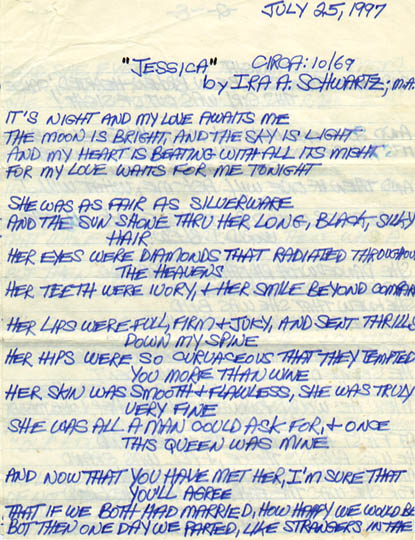 JULY 25, 1997
"JESSICA" CIRCA: 10/69
by IRA A. SCHWARTZ; M.A.
IT'S NIGHT AND MY LOVE AWAITS ME
THE MOON IS BRIGHT, AND THE SKY IS LIGHT
AND MY HEART IS BEATING WITH ALL ITS MIGHT
FOR MY LOVE WAITS FOR ME TONIGHT
SHE WAS AS FAIR AS SILVERWARE
AND THE SUN SHONE THRU HER LONG, BLACK, SILKY
HAIR
HER EYES WERE DIAMONDS THAT RADIATED THROUGHOU
THE HEAVENS
HER TEETH WERE IVORY, & HER SMILE BEYOND COMPAR
HER LIPS WERE FULL, FIRM & JUICY, AND SENT THRILLS
DOWN MY SPINE
HER HIPS WERE SO CURVACEOUS THAT THEY TEMPTED
YOU MORE THAN WINE
HER SKIN WAS SMOOTH & FLAWLESS, SHE WAS TRULY
VERY FINE
SHE WAS ALL A MAN COULD ASK FOR, & ONCE
THIS QUEEN WAS MINE
AND NOW THAT YOU HAVE MET HER, I'M SURE THAT
YOU'LL AGREE
THAT IF WE BOTH HAD MARRIED, HOW HAPPY WE WOULD BE
BUT THEN ONE DAY WE PARTED, LIKE STRANGERS IN THE